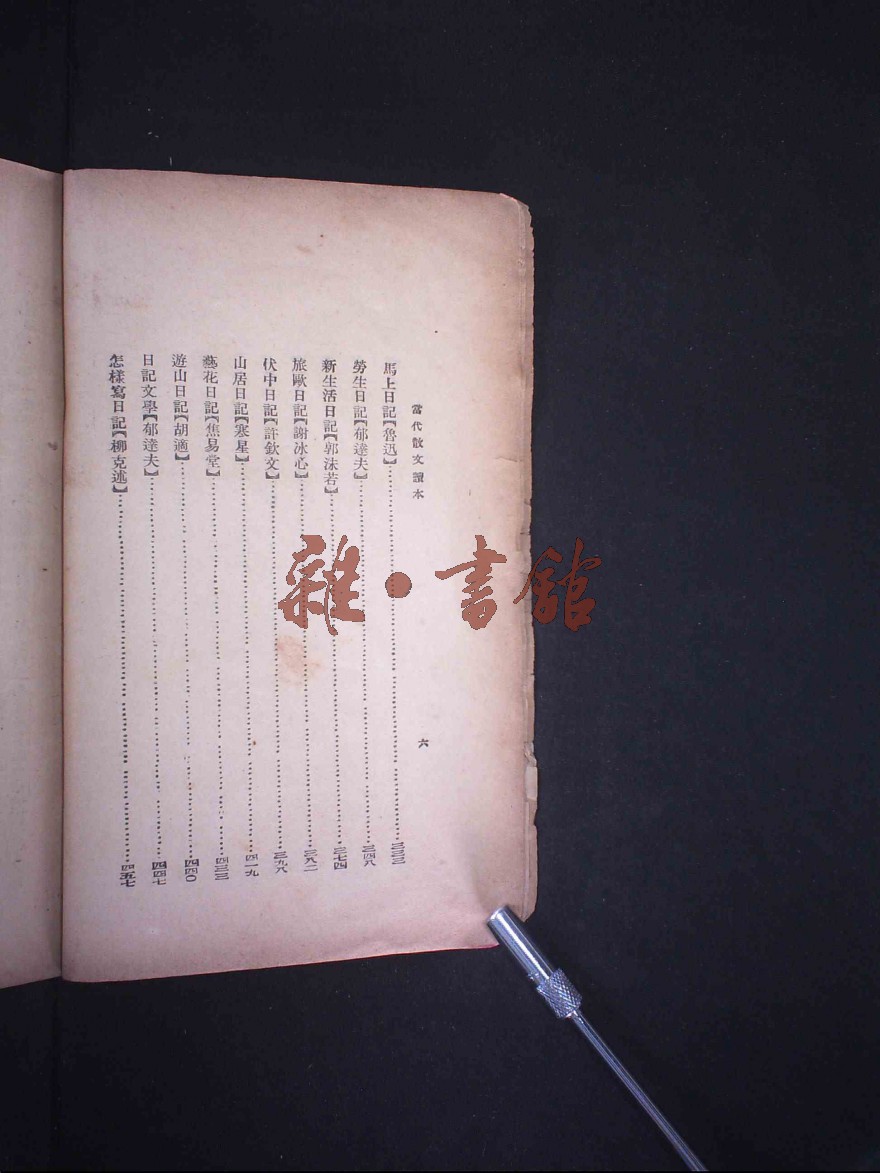 當代散文讀本
六
馬上日記【魯迅】…………三三三
勞生日記【郁達夫】…………三四八
新生活日記【郭沫若】…………三七四
旅歐日記【謝冰心】…………三八二
伏中日記【許欽文】…………三九八
山居日記【寒星】…………四一九
藝花日記【焦易堂】…………四三三
遊山日記【胡適】…………四四〇
日記文學【郁達夫】…………四四七
怎樣寫日記【柳克述】…………四五七
雜·書館